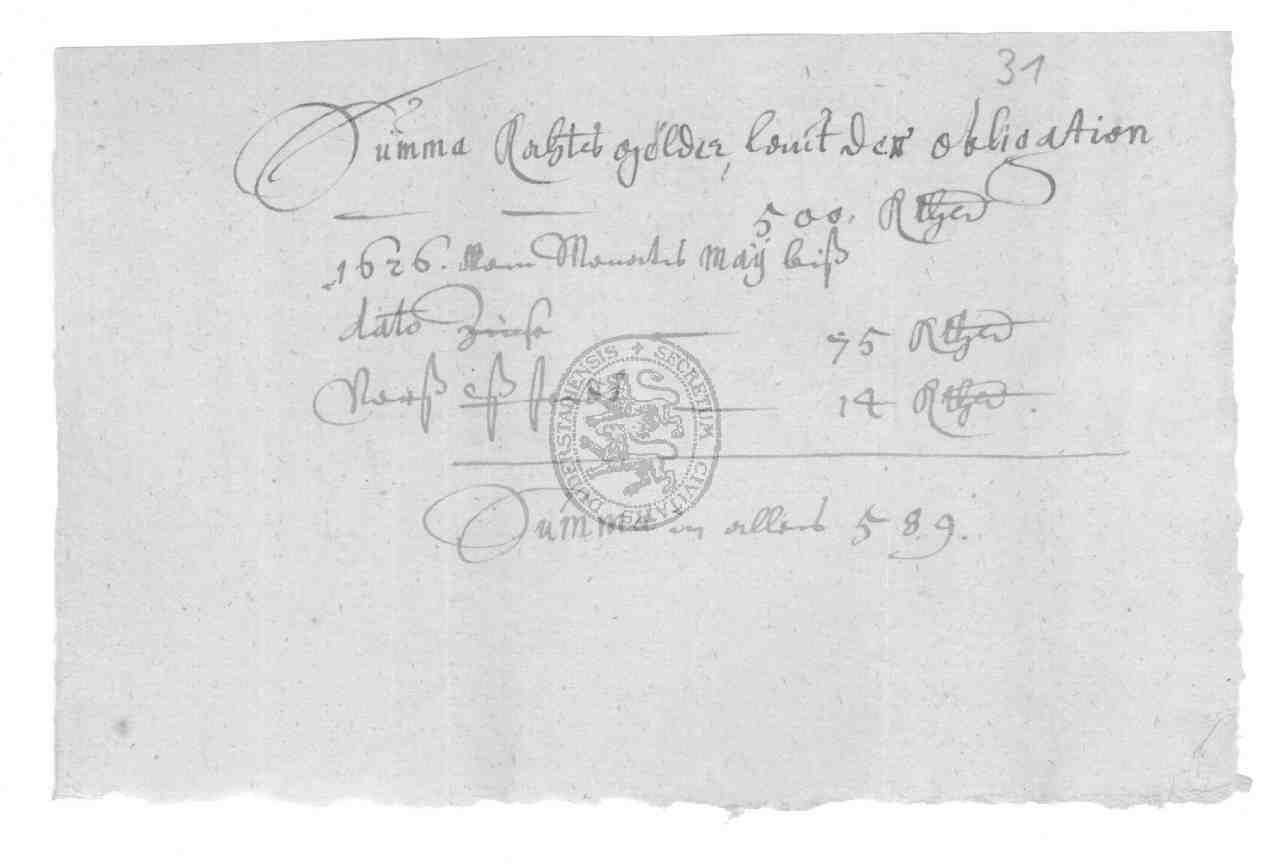 31
Summa Rahtes gölder, laut der obligation
500. Rthler
1626. vom Monats Maÿ biß
dato Zinse 75 Rthler
14 Rthler.
Summa in alles 589.
SECRETUM CIVITATIS DUDERSTADIENSIS